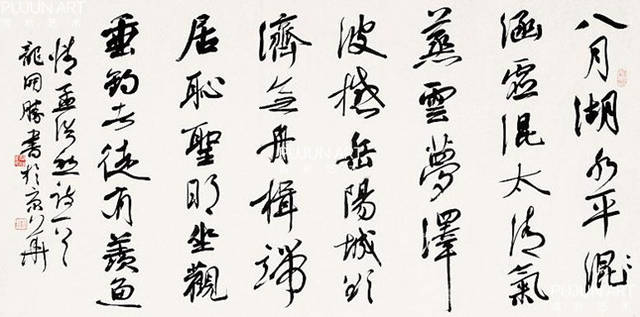 八月湖水平混
涵虛混太清氣
蒸雲夢澤
波撼岳陽城欲
濟無舟楫端
居恥聖明坐觀
垂釣者徒有羨魚
情孟浩然詩一首
龍開勝書於京華